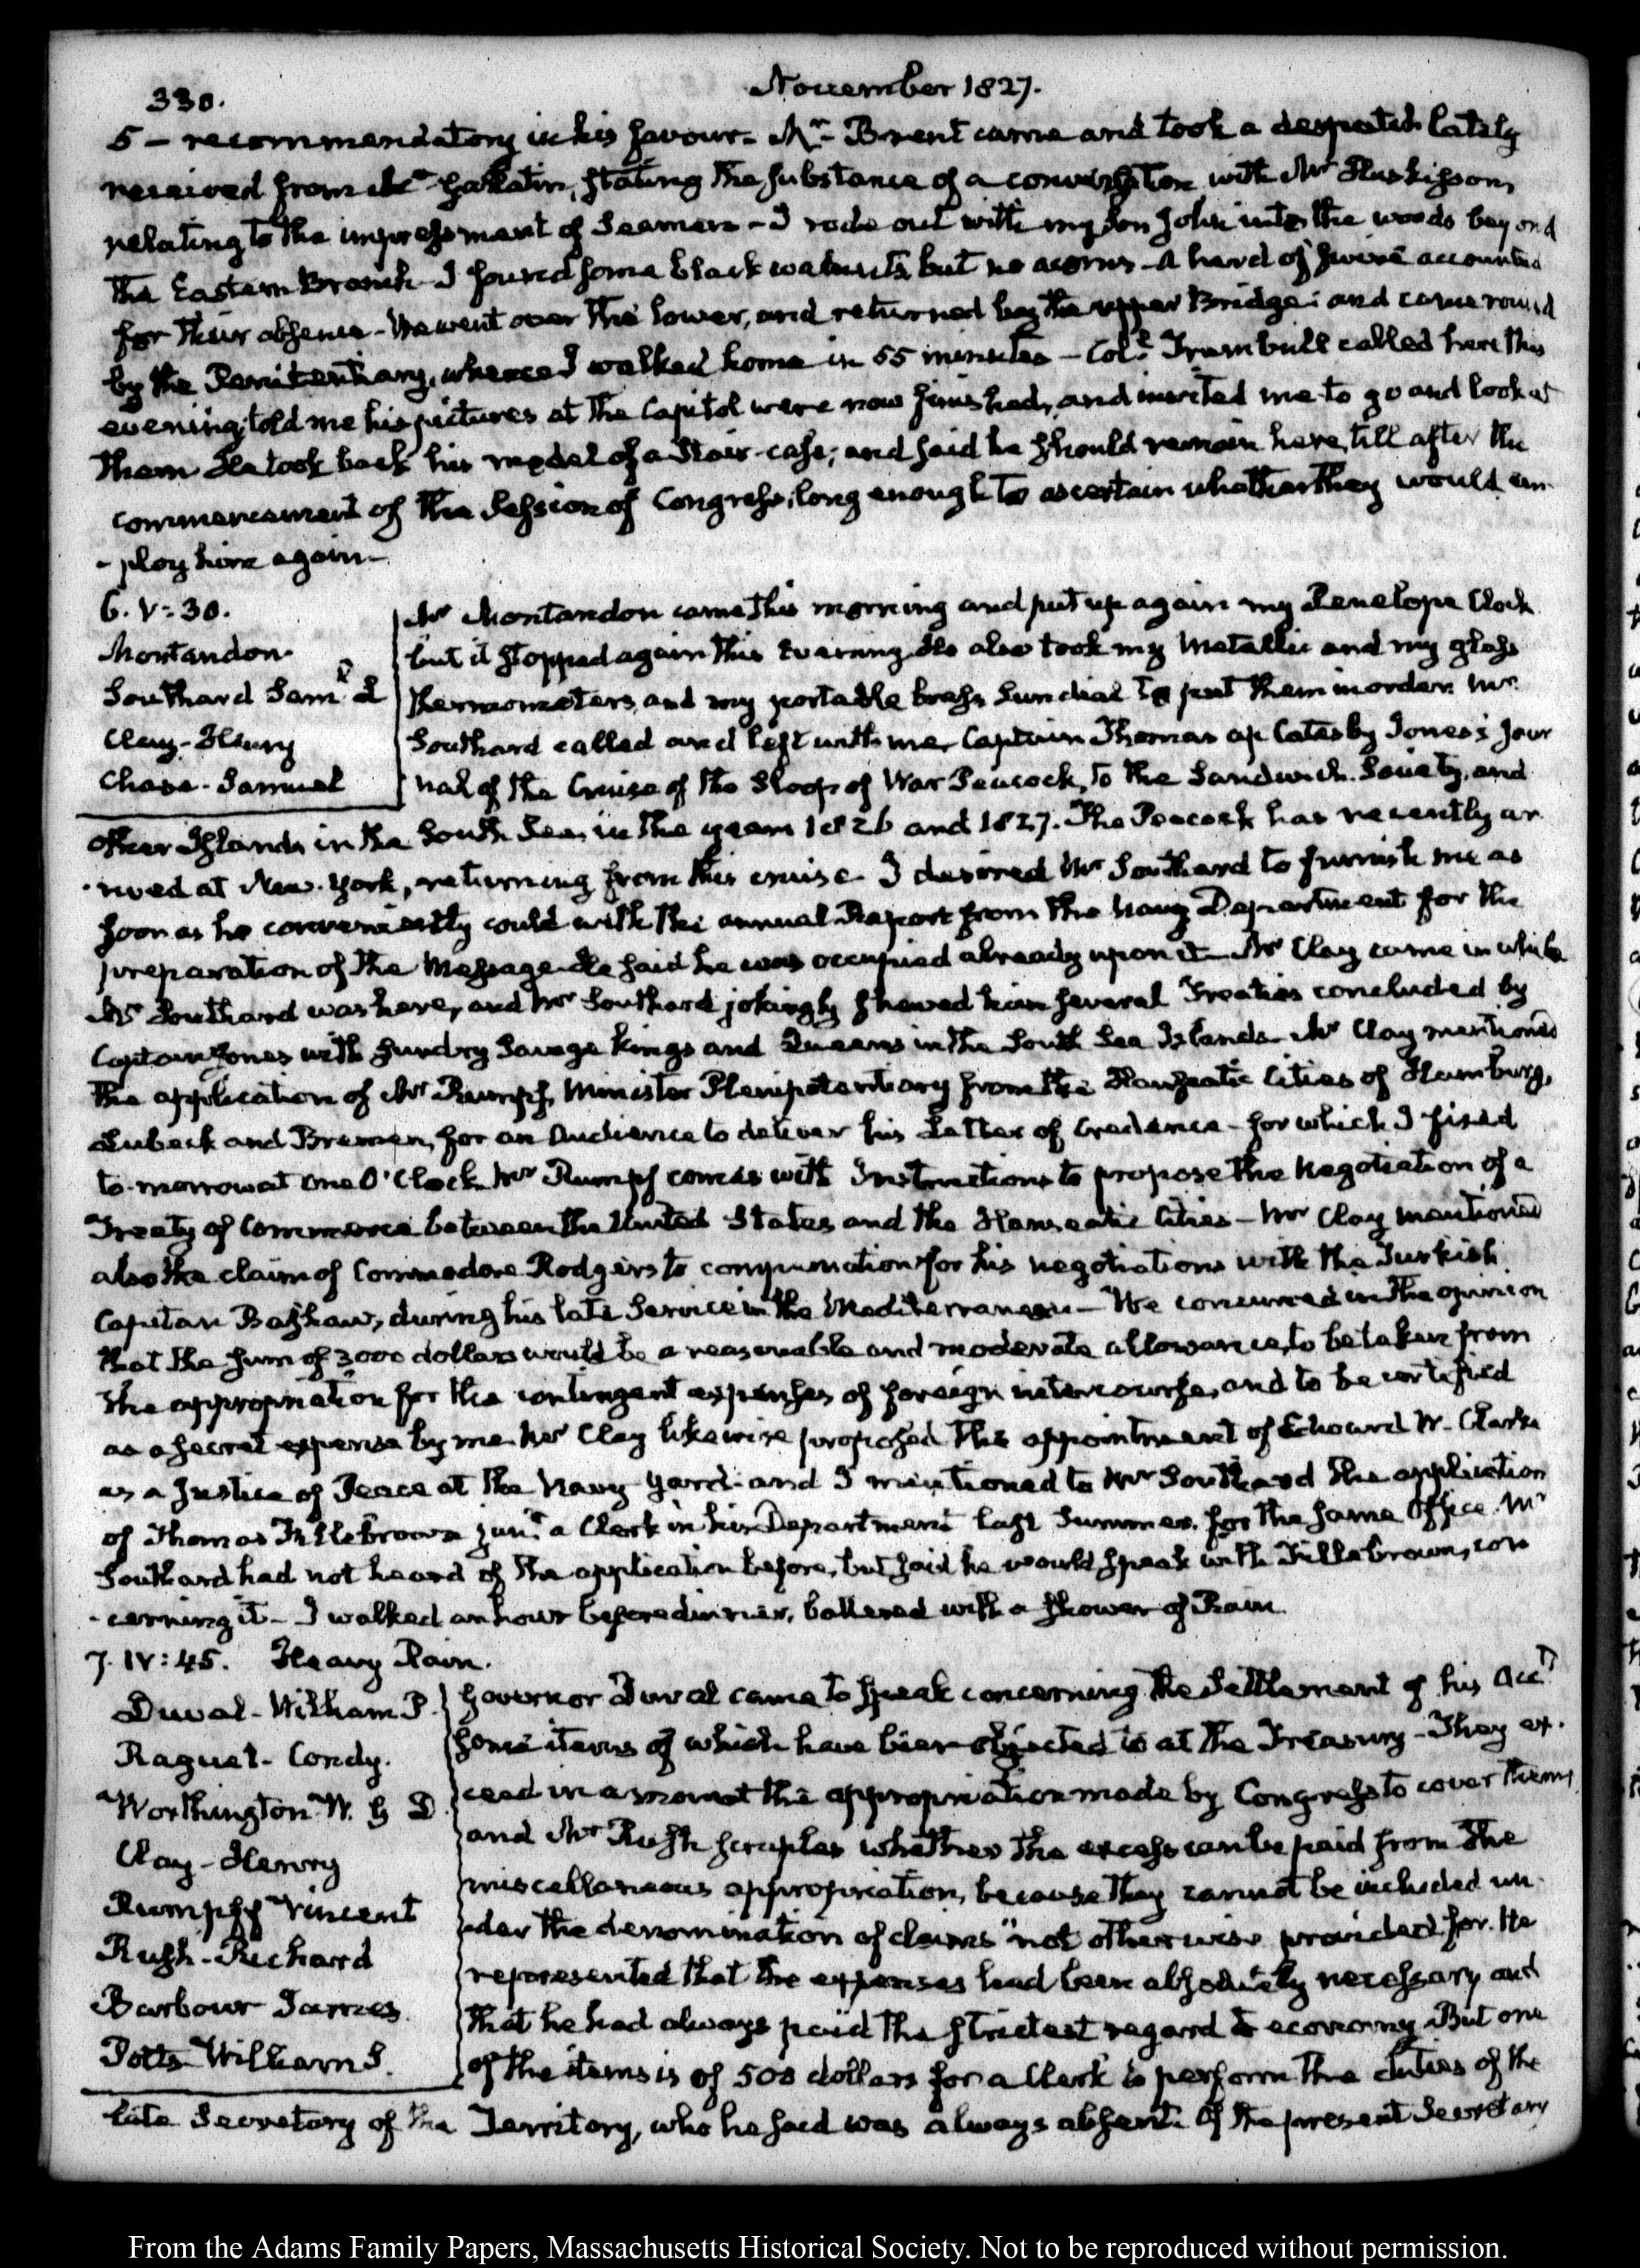 330.
November 1827.
5 — recommendatory in his favour. Mr. Brent came and took a despatch lately
received from Mr. Gallatin, stating the substance of a conversation with Mr Huskisson,
relating to the impressment of Seamen — I rode out with my Son John into the woods beyond
the Eastern Branch. I found some black walnuts but no acorns. A herd of swine accounted
for their absence. We went over the lower, and returned by the upper Bridge; and came round
by the Penitentiary, whence I walked home in 55 minutes — Coll. Trumbull called here this
evening; told me his pictures at the Capitol were now finished, and invited me to go and look at
them He took back his model of a Stair-case; and said he should remain here till after the
commencement of the Session of Congress; long enough to ascertain whether they would em-
-ploy him again —
6. V: 30.
Montandon.
Southard Saml L
Clay-Henry
Chase-Samuel
Mr Montandon came this morning and put up again my Penelope Clock
but it stopped again this Evening. He also took my Metallic and my glass
thermometers, and my portable brass Sun dial to put them in order. Mr.
Southard called and left with me, Captain Thomas ap Catesby Jones's jour
nal of the Cruise of the Sloop of War Peacock, to the Sandwich, Society, and
other Islands in the South Sea, in the years 1826 and 1827. The Peacock has recently ar
-rived at New-York, returning from this cruise. I desired Mr Southard to furnish me as
soon as he conveniently could with the annual Report from the Navy Department for the
preparation of the Message. He said he was occupied already upon it. Mr Clay came in while
Mr Southard was here, and Mr Southard jokingly shewed him several Treaties concluded by
Captain Jones with sundry Savage Kings and Queens in the South Sea Islands. Mr Clay mentioned
the application of Mr Rumpff, Minister Plenipotentiary from the Hanseatic Cities of Hamburg,
Lubeck and Bremen, for an Audience to deliver his Letter of Credence — for which I fixed
to-morrow at One O'Clock. Mr Rumpff comes with Instructions to propose the Negotiation of a
Treaty of Commerce between the United States and the Hanseatic Cities — Mr Clay mentioned
also the claim of Commodore Rodgers to compensation for his negotiations with the Turkish
Capitan Bashaw, during his late Service in the Mediterranean — We concurred in the opinion
that the sum of 3000 dollars would be a reasonable and moderate allowance, to be taken from
the appropriation for the contingent expenses of foreign intercourse, and to be certified
as a secret expense by me. Mr Clay likewise proposed the appointment of Edward W. Clarke
as a Justice of Peace at the Navy Yard — and I mentioned to Mr Southard the application
of Thomas Fillebrown junr. a Clerk in his Department last Summer, for the same Office. Mr
Southard had not heard of the application before, but said he would speak with Fillebrown, con
-cerning it — I walked an hour before dinner, bothered with a shower of Rain.
7. IV: 45. Heavy Rain.
Duval-William P.
Raguet-Condy.
Worthington W. G D.
Clay-Henry
Rumpff Vincent
Rush-Richard
Barbour James.
Potts William S.
Governor Duval came to speak concerning the Settlement of his Acct.
some items of which have been objected to at the Treasury — They ex-
ceed in amount the appropriation made by Congress to cover them,
and Mr Rush scruples whether the excess can be paid from the
miscellaneous appropriation, because they cannot be included un-
der the denomination of claims "not otherwise provided for. He
represented that the expenses had been absolutely necessary and
that he had always paid the strictest regard to economy. But one
of the items is of 500 dollars for a Clerk to perform the duties of the
late Secretary of the Territory, who he said was always absent. Of the present Secretary
From the Adams Family Papers, Massachusetts Historical Society. Not to be reproduced without permission.